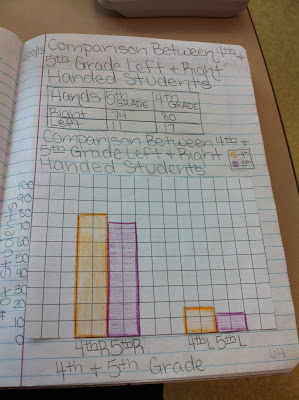 Comparison Between 4th +
5th Grade Left + Right
Handed Students
Hands 5th GRADE 4th GRADE
Right 74 80
Left 11 17
Comparison Between 4th +
5th Grade Left + Right
Handed Students
100
90
80
70
60
50
40
30
20
10
0
4thR 5thR 4thL 5thL
4th + 5th Grade